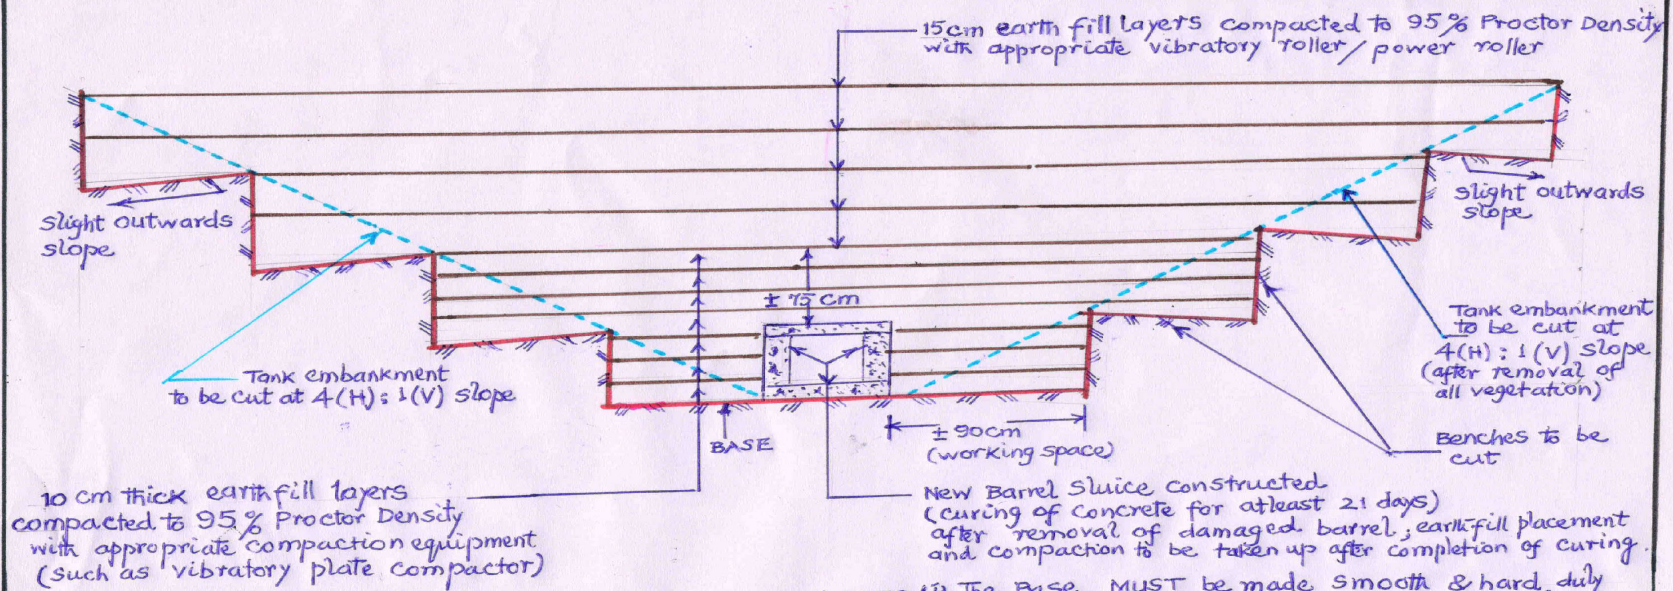 15cm earth fill layers compacted to 95% Proctor Density
with appropriate vibratory roller/power roller
Slight outwards
slope
Slight outwards
slope
± 75 cm
Tank embankment
to be cut at 4(H):1(V) slope
Tank embankment
to be cut at
4(H):1(V) slope
(after removal of
all vegetation)
BASE
± 90cm
(working space)
Benches to be
cut
10 cm thick earthfill layers
compacted to 95% Proctor Density
with appropriate compaction equipment
(such as vibratory plate compactor)
New Barrel Sluice constructed
(curing of concrete for atleast 21 days)
after removal of damaged barrel; earth-fill placement
and compaction to be taken up after completion of curing.
The Base MUST be made smooth & hard, duly